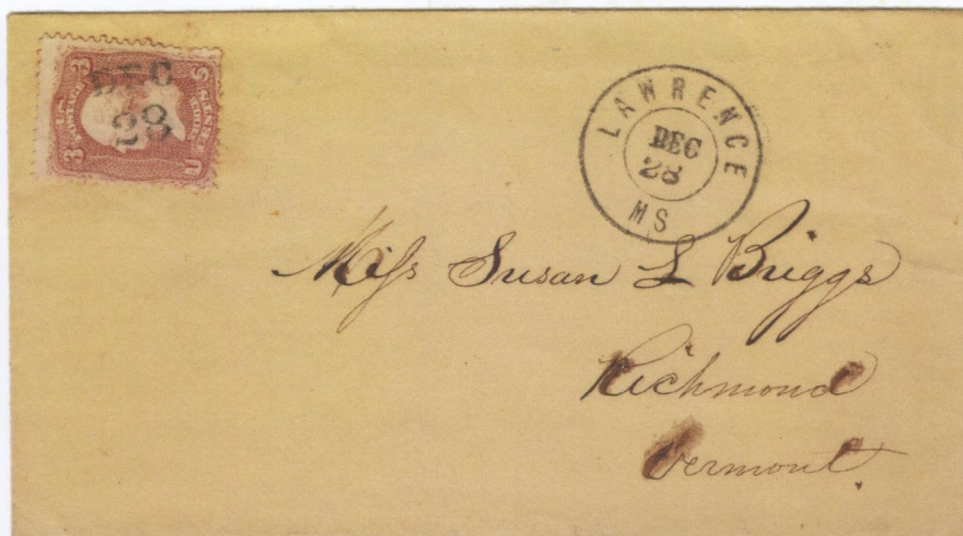 DEC
28
3 3
U S
LAWRENCE
DEC
28
MS
Miſs Susan L Briggs
Richmond
Vermont.